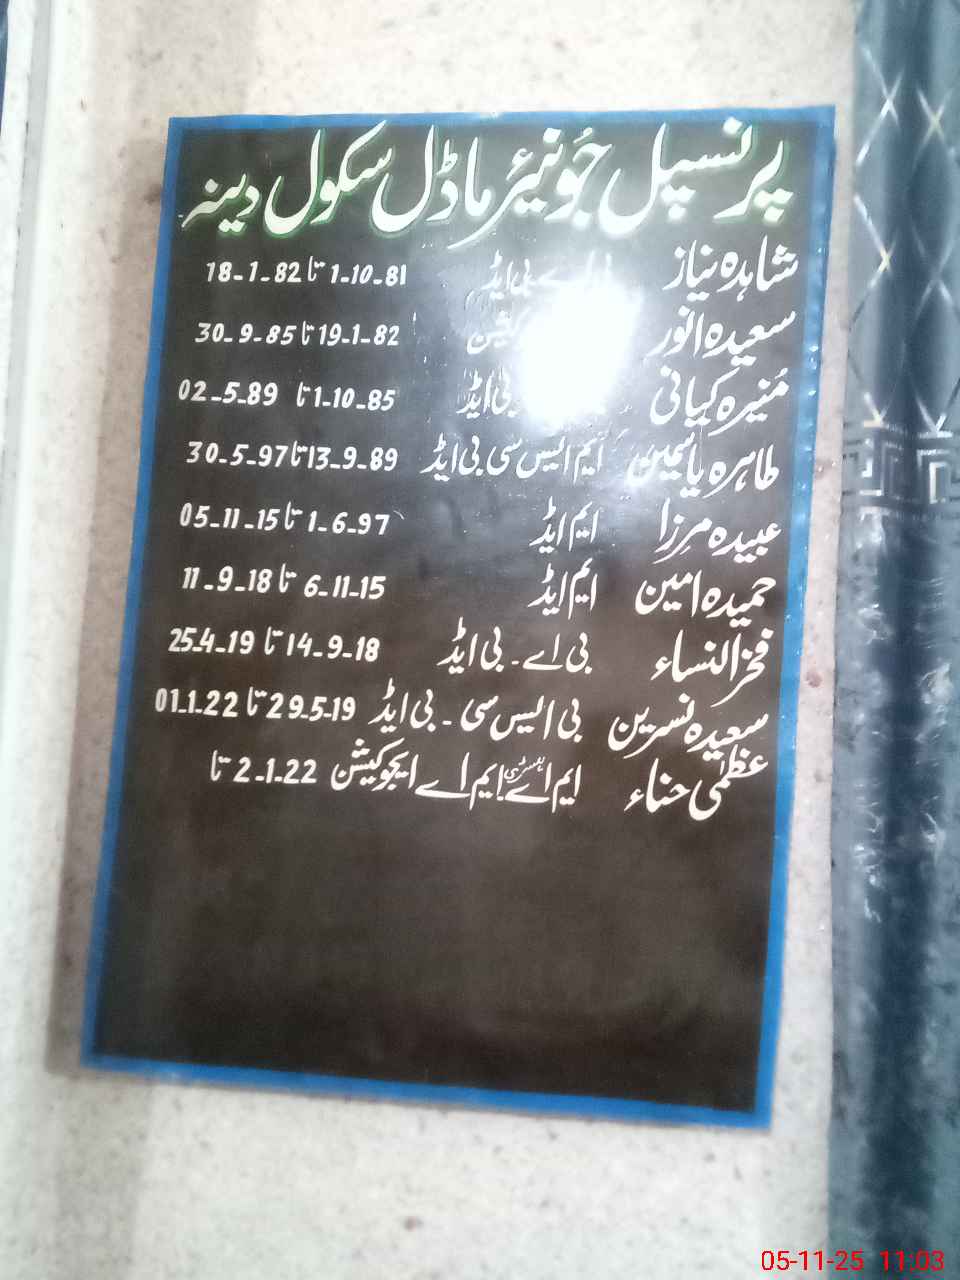 پرنسپل جُونیئر ماڈل سکول دینہ
شاہدہ نیاز بی اے بی ایڈ 1-10-81 تا 18-1-82
سعیدہ انور 19-1-82 تا 30-9-85
مُنیرہ کیانی بی ایڈ 1-10-85 تا 02-5-89
طاہرہ یاسمین ایم ایس سی بی ایڈ 13-9-89 تا 30-5-97
عبیدہ مرزا ایم ایڈ 1-6-97 تا 05-11-15
حمیدہ امین ایم ایڈ 6-11-15 تا 11-9-18
فخرالنساء بی اے - بی ایڈ 14-9-18 تا 25-4-19
سعیدہ نسرین بی ایس سی - بی ایڈ 29-5-19 تا 01-1-22
عظمٰی حناء ایم اے ہسٹری ایم اے ایجوکیشن 2-1-22 تا
05-11-25 11:03